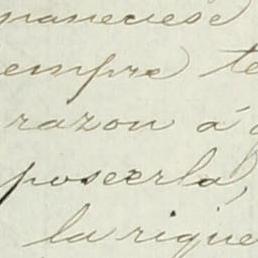 maneciese
empre te
razon á
poseerla,
la rique